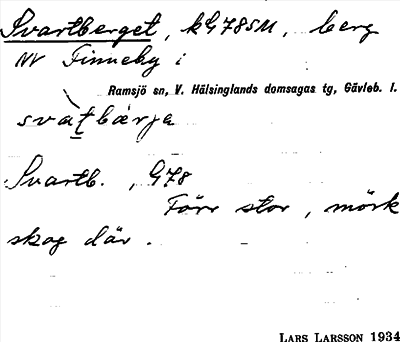 Svartberget, kG78SM, berg
NV Finneby i
Ramsjö sn, V. Hälsinglands domsagas tg, Gävleb. l.
svàt̠bærja
Svartb., G78
Förr stor, mörk
skog där.
LARS LARSSON 1934